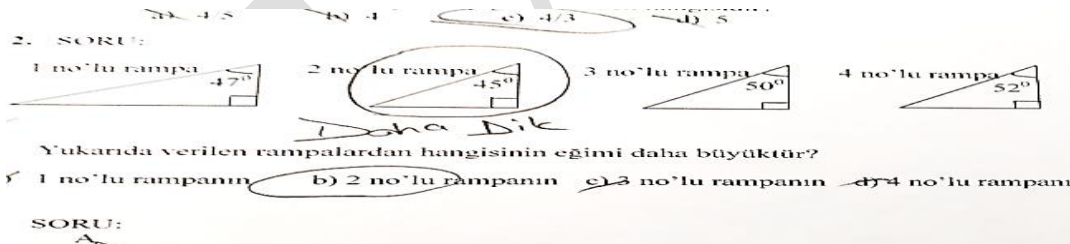 a) 4/5 b) 4 c) 4/3 d) 5
2. SORU:
1 no'lu rampa 47⁰ 2 no'lu rampa 45⁰ 3 no'lu rampa 50⁰ 4 no'lu rampa 52⁰
Daha Dik
Yukarıda verilen rampalardan hangisinin eğimi daha büyüktür?
1 no'lu rampanın b) 2 no'lu rampanın c) 3 no'lu rampanın d) 4 no'lu rampanı
SORU:
A